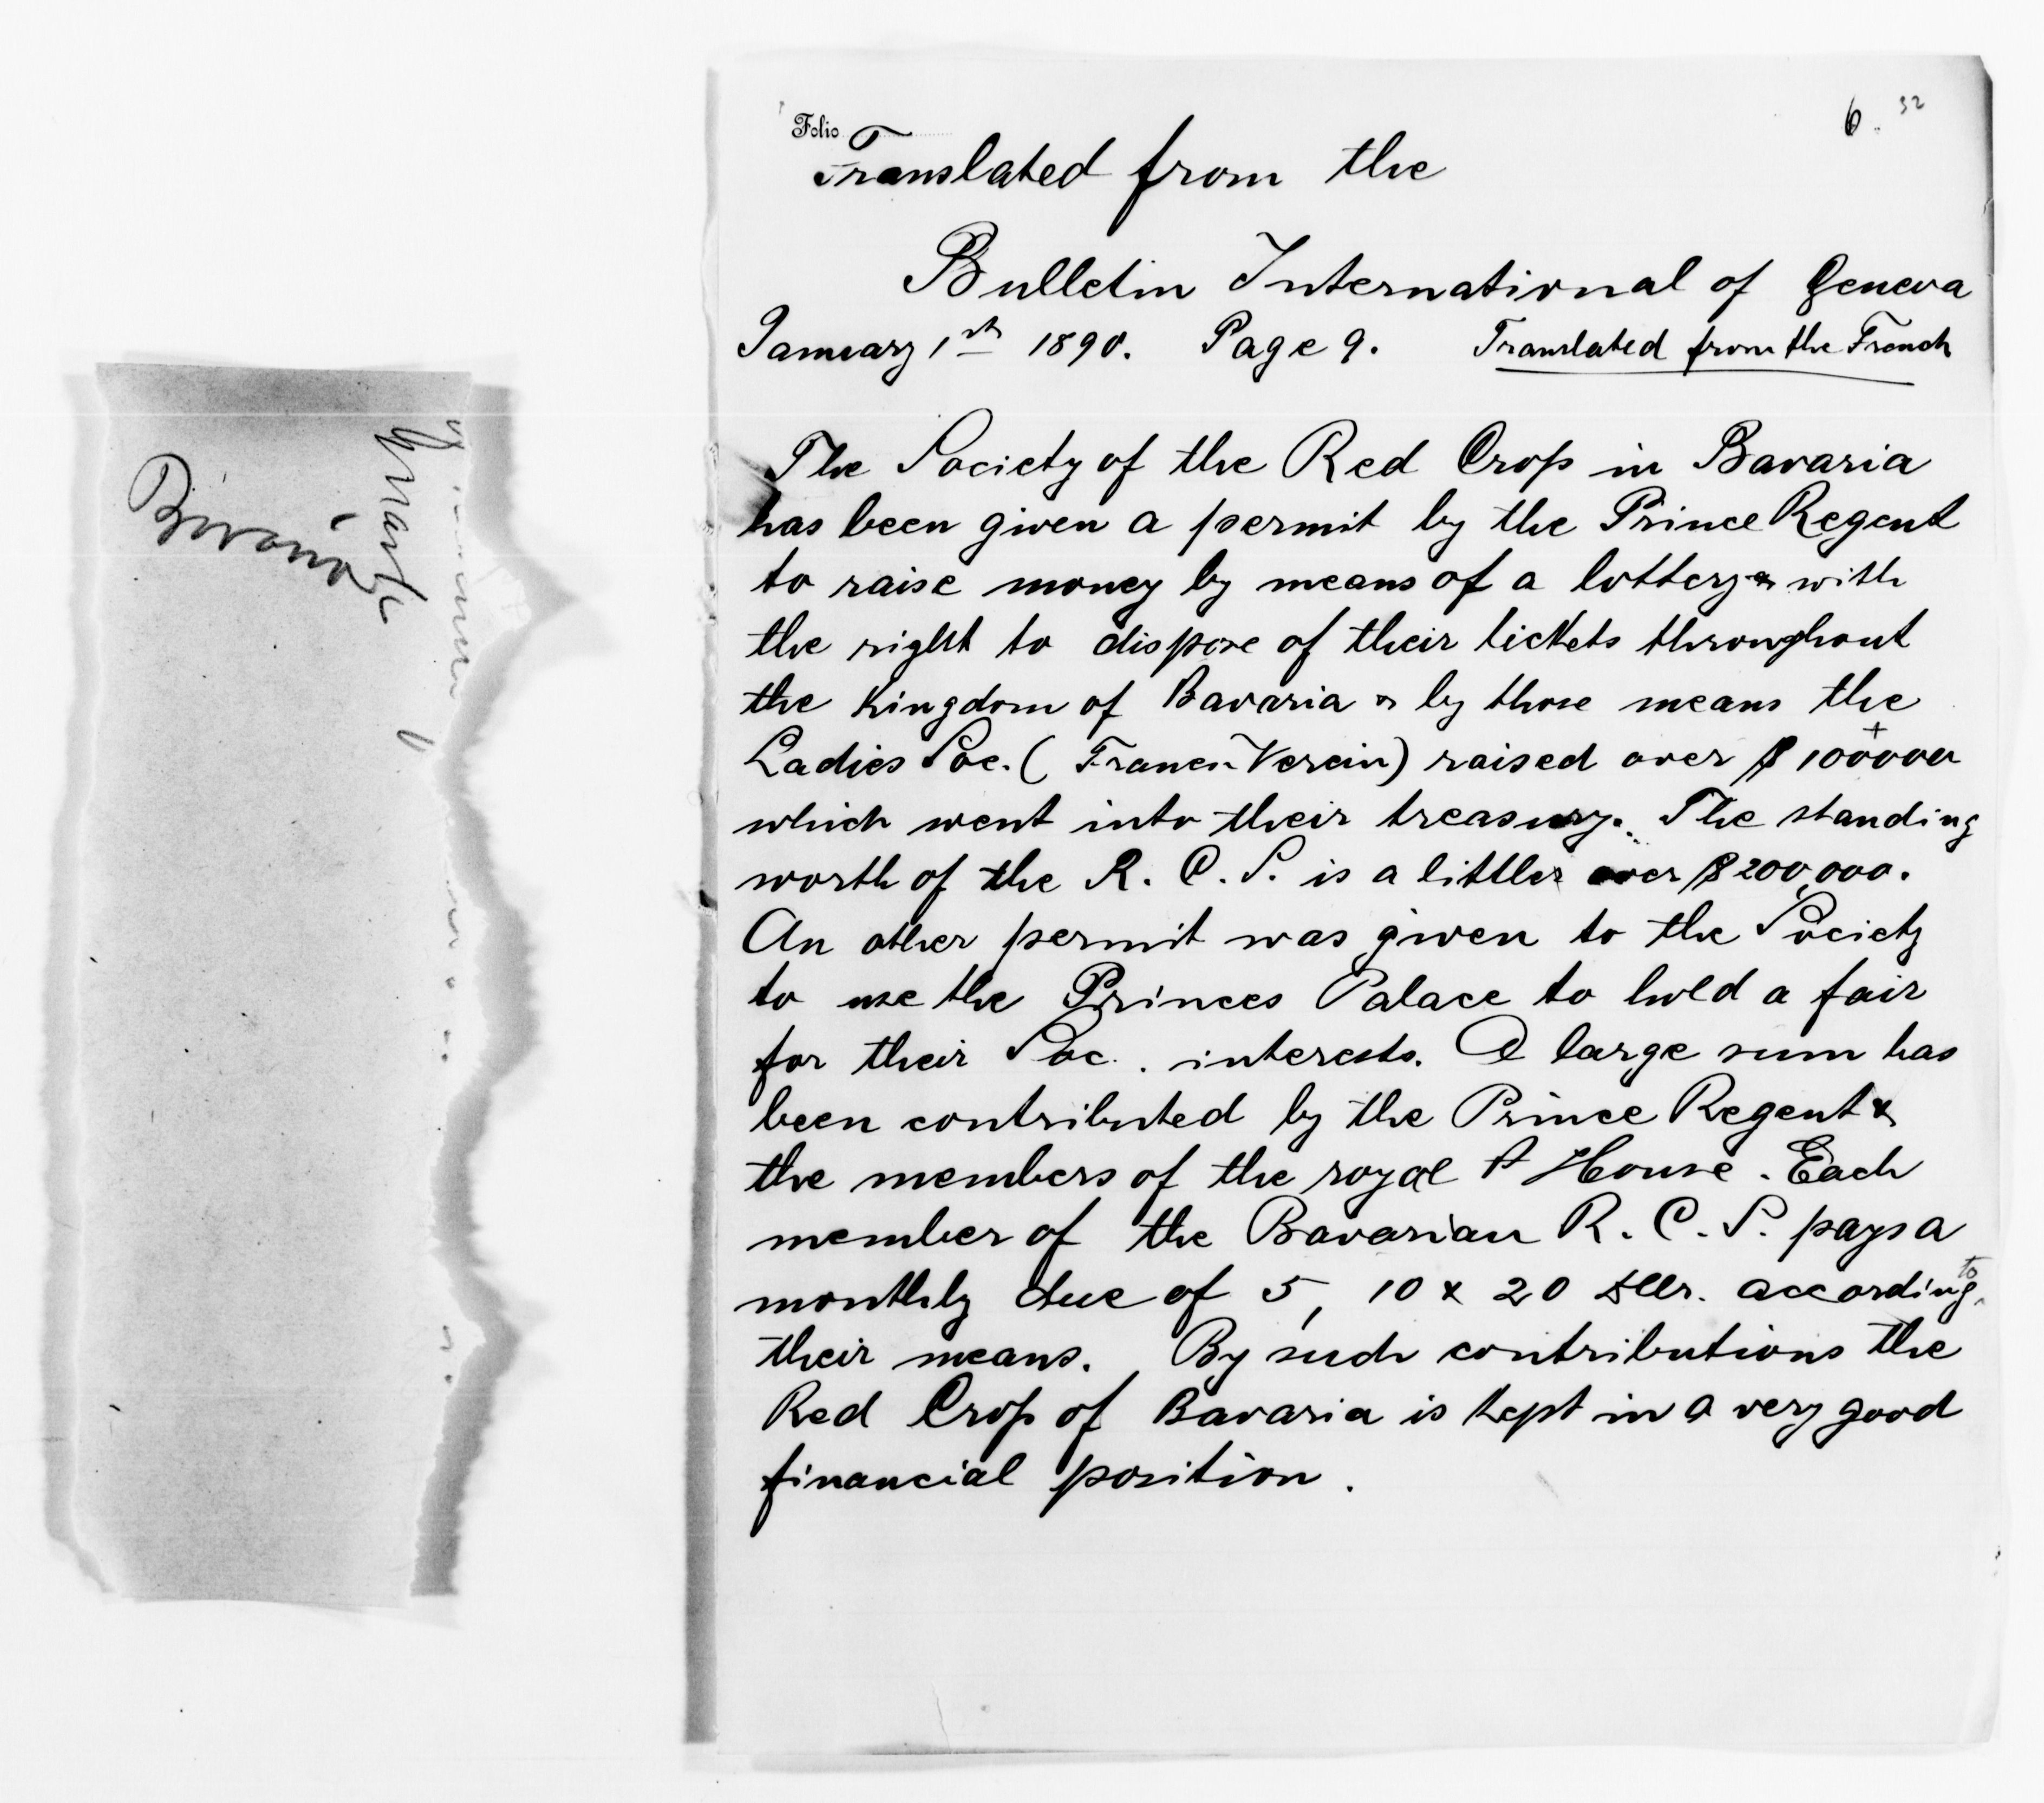 6. 32
Folio
Translated from the
Bulletin International of Geneva
January 1st 1890. Page 9. Translated from the French
The Society of the Red Cross in Bavaria
has been given a permit by the Prince Regent
to raise money by means of a lottery & with
the right to dispose of their tickets throughout
the Kingdom of Bavaria & by those means the
Ladies Soc. (Frauen Verein) raised over $ 100000
which went into their treasury. The standing
worth of the R. C. S. is a little over $ 200,000.
An other permit was given to the Society
to use the Princes Palace to hold a fair
for their Soc. interests. A large sum has
been contributed by the Prince Regent &
the members of the royal House. Each
member of the Bavarian R. C. S. pays a
monthly due of 5, 10 & 20 according to
their means. By such contributions the
Red Cross of Bavaria is kept in a very good
financial position.